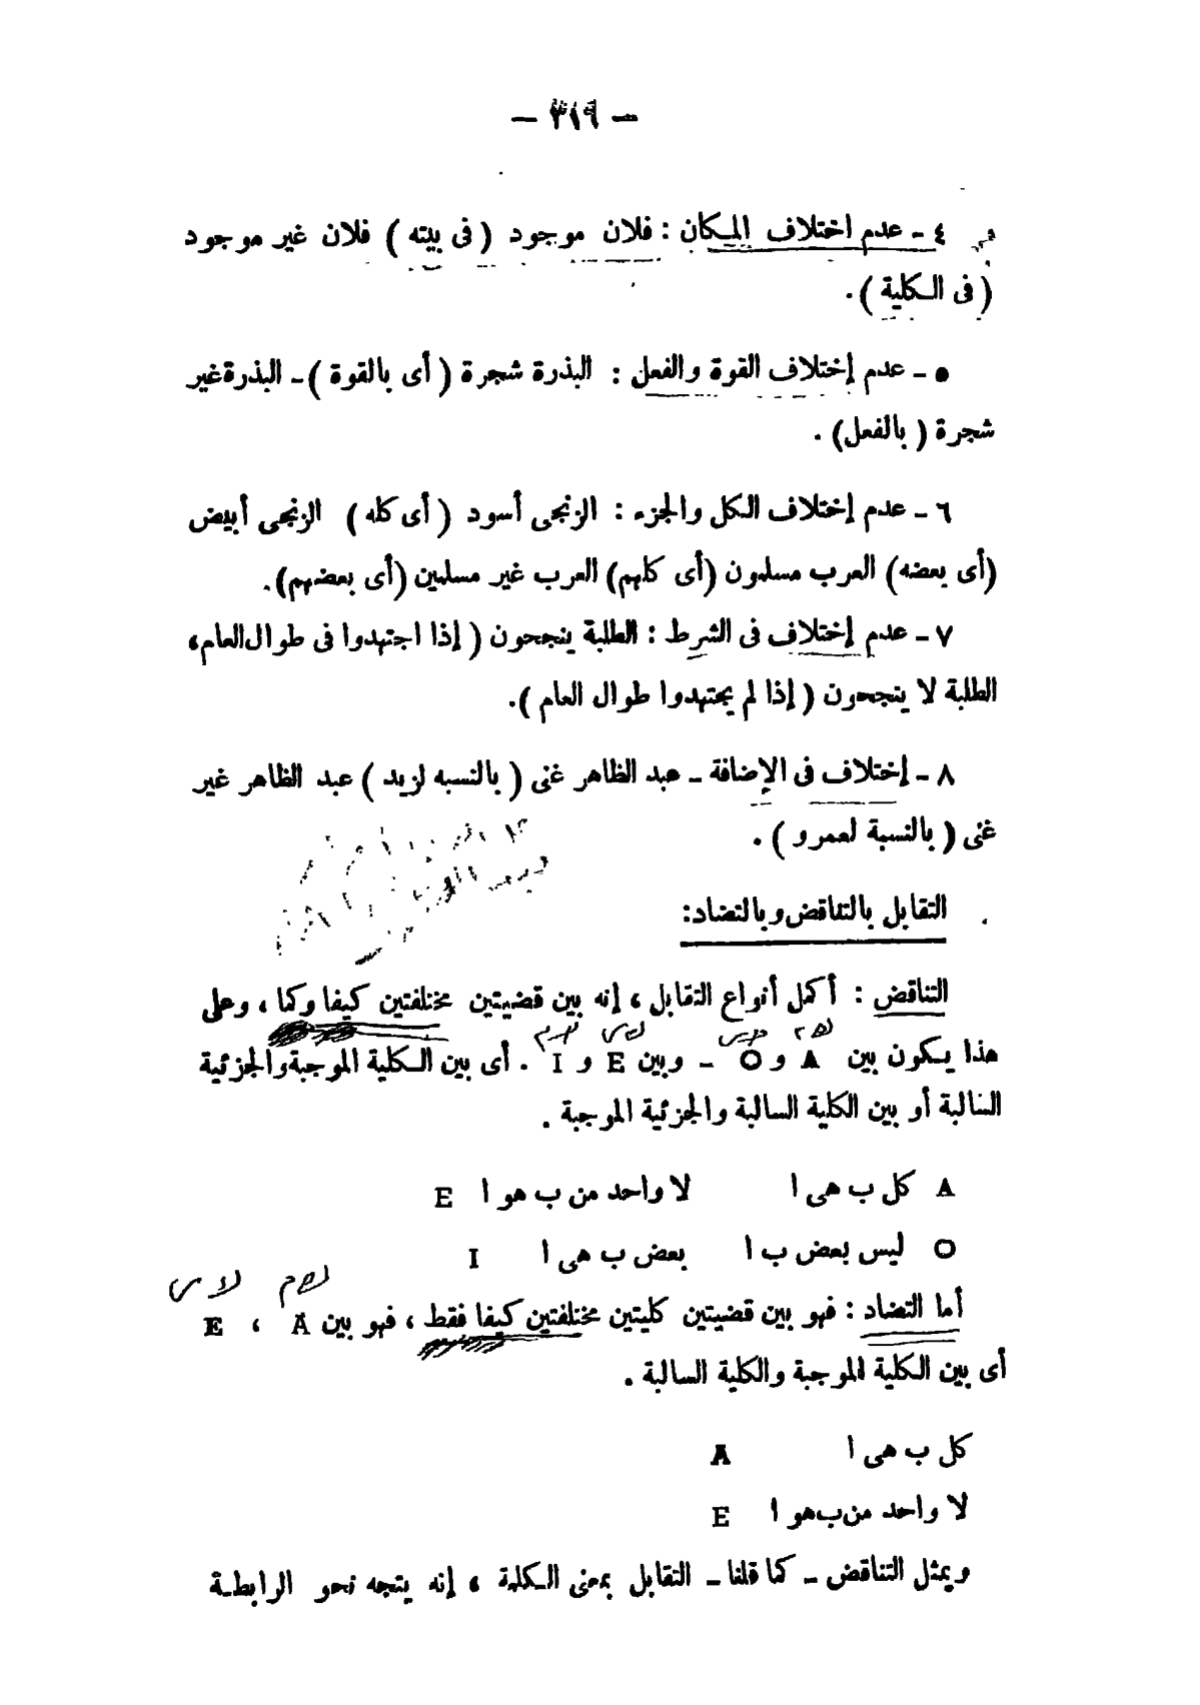 — ٣١٩ —
٤ - عدم اختلاف المكان : فلان موجود ( فى بيته ) فلان غير موجود
( فى الكلية ) .
٥ - عدم إختلاف القوة والفعل : البذرة شجرة ( أى بالقوة ) - البذرة غير
شجرة ( بالفعل ) .
٦ - عدم إختلاف الكل والجزء : الزنجى أسود ( أى كله ) الزنجى أبيض
(أى بعضه) العرب مسلمون (أى كلهم) العرب غير مسلمين (أى بعضهم).
٧ - عدم إختلاف فى الشرط : الطلبة ينجحون ( إذا اجتهدوا فى طوال العام ،
الطلبة لا ينجحون ( إذا لم يجتهدوا طوال العام ).
٨ - إختلاف فى الإضافة - عبد الظاهر غنى ( بالنسبه لزيد ) عبد الظاهر غير
غنى ( بالنسبة لعمرو ) .
التقابل بالتناقض وبالتضاد:
التناقض : أكمل أنواع التقابل ، إنه بين قضيتين مختلفتين كيفا وكما ، وعلى
هذا يكون بين A و O - وبين E و I . أى بين الكلية الموجبة والجزئية
السالبة أو بين الكلية السالبة والجزئية الموجبة .
A كل ب هى ا لا واحد من ب هو ا E
O ليس بعض ب ا بعض ب هى ا I
أما التضاد : فهو بين قضيتين كليتين مختلفتين كيفا فقط ، فهو بين A ، E
أى بين الكلية الموجبة والكلية السالبة .
كل ب هى ا A
لا واحد من ب هو ا E
ويمثل التناقض - كما قلنا - التقابل بمعنى الكلمة ، إنه يتجه نحو الرابطة